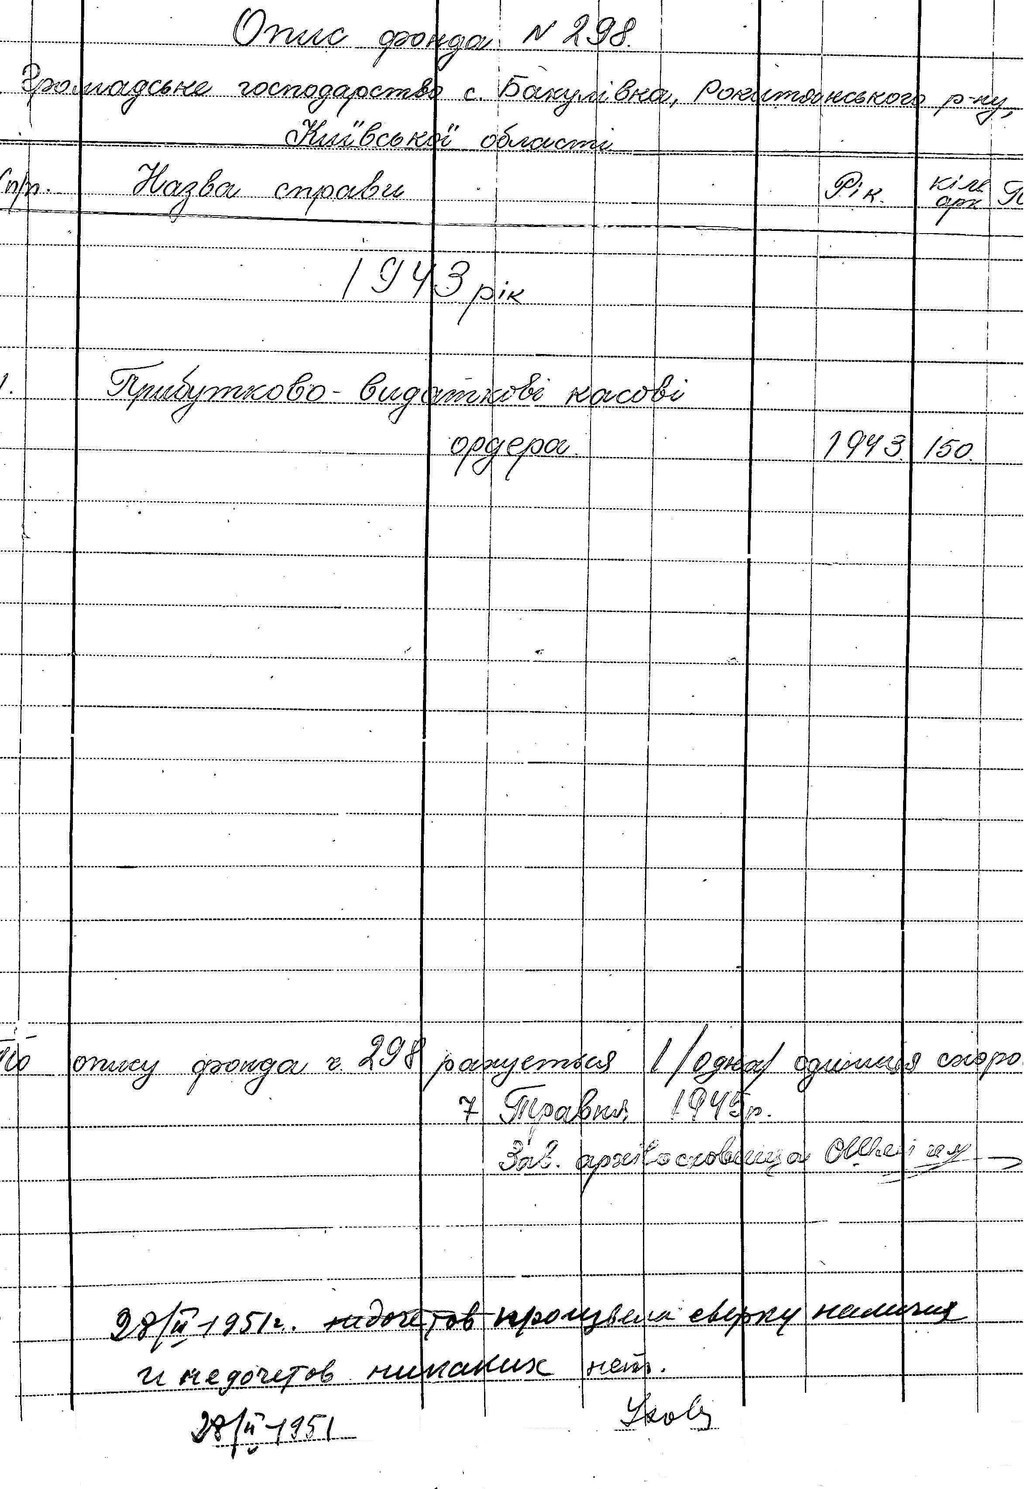 Опис фонда N 298.
Громадське господарство с. Бакумівка, Рокитянського р-ну,
Київської області
п/п. Назва справи Рік. кільк арк
1943 рік
1. Прибутково-видаткові касові
ордера. 1943. 150.
По опису фонда ч. 298 рахується 1 /одна/ одиниця схоро
7 Травня 1945 р.
Зав. архівосховища
28/II-1951г. недочетов произвела сверку наличия
и недочетов никаких нет.
28/II-1951